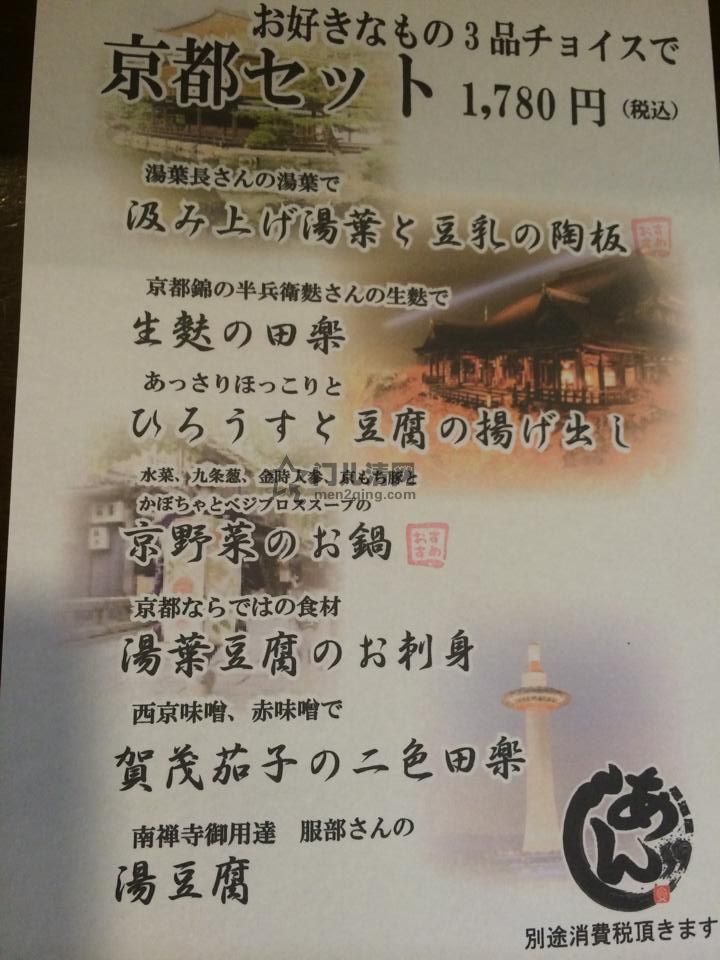 お好きなもの3品チョイスで
京都セット 1,780円（税込）
湯葉長さんの湯葉で
汲み上げ湯葉と豆乳の陶板 おすすめ
京都錦の半兵衛麩さんの生麩で
生麩の田楽
あっさりほっこりと
ひろうすと豆腐の揚げ出し
水菜、九条葱、金時人参、京もち豚と
门儿清网
men2qing.com
かぼちゃとベジブロススープの
京野菜のお鍋 おすすめ
京都ならではの食材
湯葉豆腐のお刺身
西京味噌、赤味噌で
賀茂茄子の二色田楽
南禅寺御用達 服部さんの
湯豆腐
あん
別途消費税頂きます